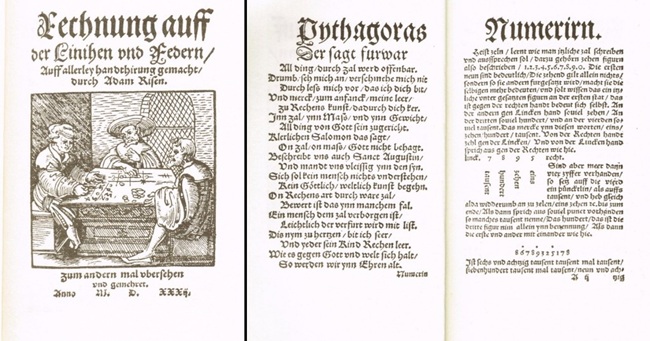 Rechnung auff
der Linihen vnd Federn/
Auff allerley handthirung gemacht/
durch Adam Risen.
zum andern mal vbersehen
vnd gemehret.
Anno M. D. XXXij.
Pythagoras
Der sagt furwar
All ding/durch zal werd offenbar.
Drumb/seh mich an/verschmehe mich nit
Durch less mich vor/das ich dich bit
Vnd merck/zum anfanck/meine leer/
zu Rechens kunst/dadurch dich ker.
Inn zal/ynn Mass/vnd ynn Gewicht/
All ding von Gott sein zugericht.
Klerlichen Salomon das sagt/
On zal/on mass/Gott nicht behagt.
Beschreibt vns auch Sanct Augustin/
Vnd mandt vns vleissig ynn den syn.
Sich sol kein mensch nichts vnderstehen/
Kein Göttlich/weltlich kunst begehn.
On Rechens art durch ware zal/
Bewert ist das ynn manchem fal.
Ein mensch dem zal verborgen ist/
Leichtlich der verfurt wird mit list.
Dis nym zu hertzen/bit ich seer/
Vnd yeder sein Kind Rechen leer.
Wie es gegen Gott vnd welt sich halt/
So werden wir ynn Ehren alt.
Numerirn
Numerirn.
Heist zeln/lernt wie man itzliche zal schreiben
vnd aussprechen sol/darzu gehören zehen figurn
also beschrieben/1.2.3.4.5.6.7.8.9.0. Die ersten
neun sind bedeutlich/Die zehend gilt allein nichts/
sondern so sie andern furgesatzt wird/macht sie die
selbigen mehr bedeuten/vnd solt wissen das ein itz
liche vnter gesatzten figurn an der ersten stat/das
ist gegen der rechten handt bedeut sich selbst. An
der andern gen Lincken hand souiel zehen/An
der dritten souiel hundert/vnd an der vierden so-
uiel tausent. Das mercke ynn diesen worten/eins/
zehen/hundert/tausent. Von der Rechten handt
zehl gen der Lincken/Vnd von der Lincken hand
sprich aus gen der Rechten wie hie.
linck. 7 8 9 5 recht.
tausent hundert zehen eins
Sind aber mehr dann
vier zyffer verhanden/
so setz auff die vierd
ein pünctlin/als auffs
tausent/vnd heb gleich
alda widderumb an zu zelen/eins/zehen ꝛc. bis zum
ende/Als dann sprich aus/souiel punct verhanden
so manches tausent nenne/Das hundert/das ist die
dritte figur nim allein ynn benennung/Als dann
die erste vnd ander mit einander wie hie.
86789325178
Ist sechs vnd achtzig tausent tausent mal tausent/
siebenhundert tausent mal tausent/neun vnd ach-
A ij